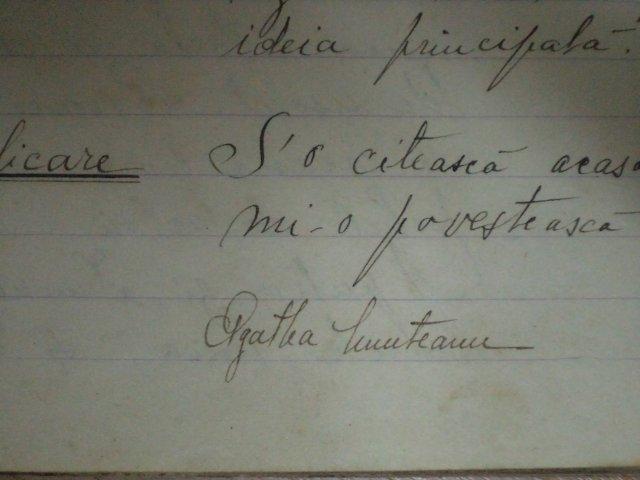 ideia principală.
licare S'o citească acasă
mi-o povestească
Agatha Munteanu